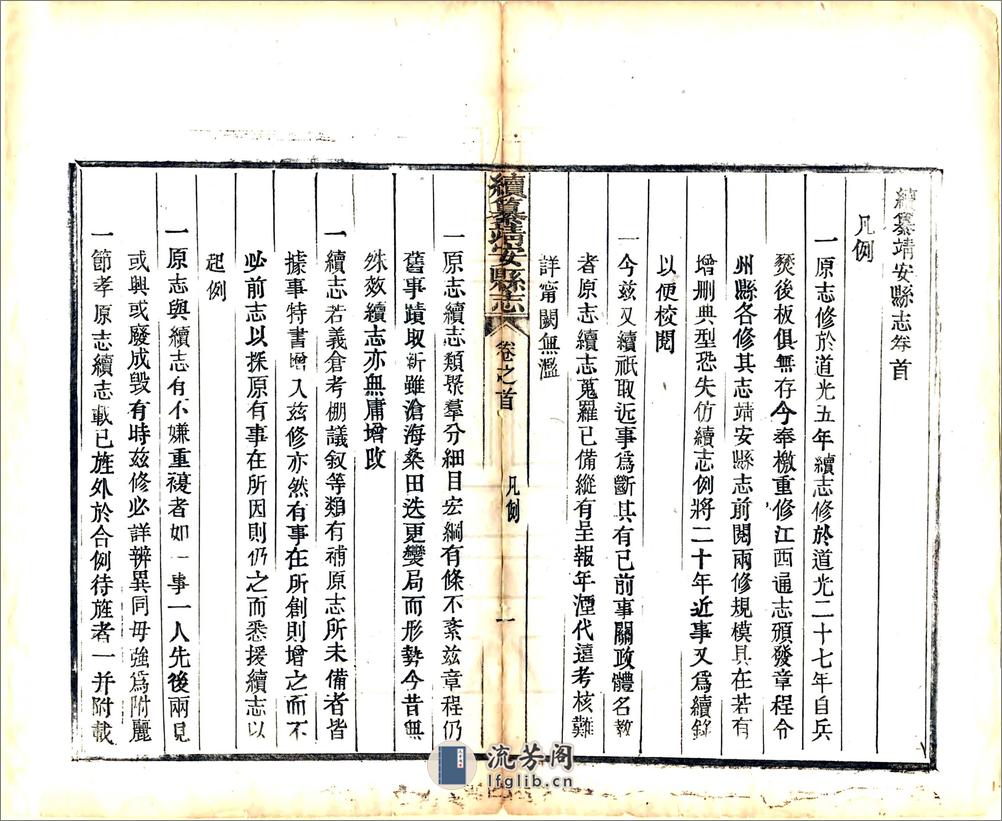 續纂靖安縣志卷首
凡例
一原志修於道光五年續志修於道光二十七年自兵
燹後板俱無存今奉檄重修江西通志頒發章程令
州縣各修其志靖安縣志前閱兩修規模具在若有
增删典型恐失仿續志例將二十年近事又爲續錄
以便校閱
一今兹又續祇取近事爲斷其有已前事關政體名教
者原志續志蒐羅已備縱有呈報年湮代遠考核難
詳甯闕無濫
續纂靖安縣志
卷之首
凡例
一
一原志續志類聚羣分細目宏綱有條不紊兹章程仍
舊事蹟取新雖滄海桑田迭更變局而形勢今昔無
殊效續志亦無庸增改
一續志若義倉考棚議叙等類有補原志所未備者皆
據事特書增入兹修亦然有事在所創則增之而不
必前志以探原有事在所因則仍之而悉援續志以
起例
一原志與續志有不嫌重複者如一事一人先後兩見
或興或廢成毀有時兹修必詳辨異同毋強爲附麗
一節孝原志續志載已旌外於合例待旌者一并附載
流芳阁
lfglib.cn